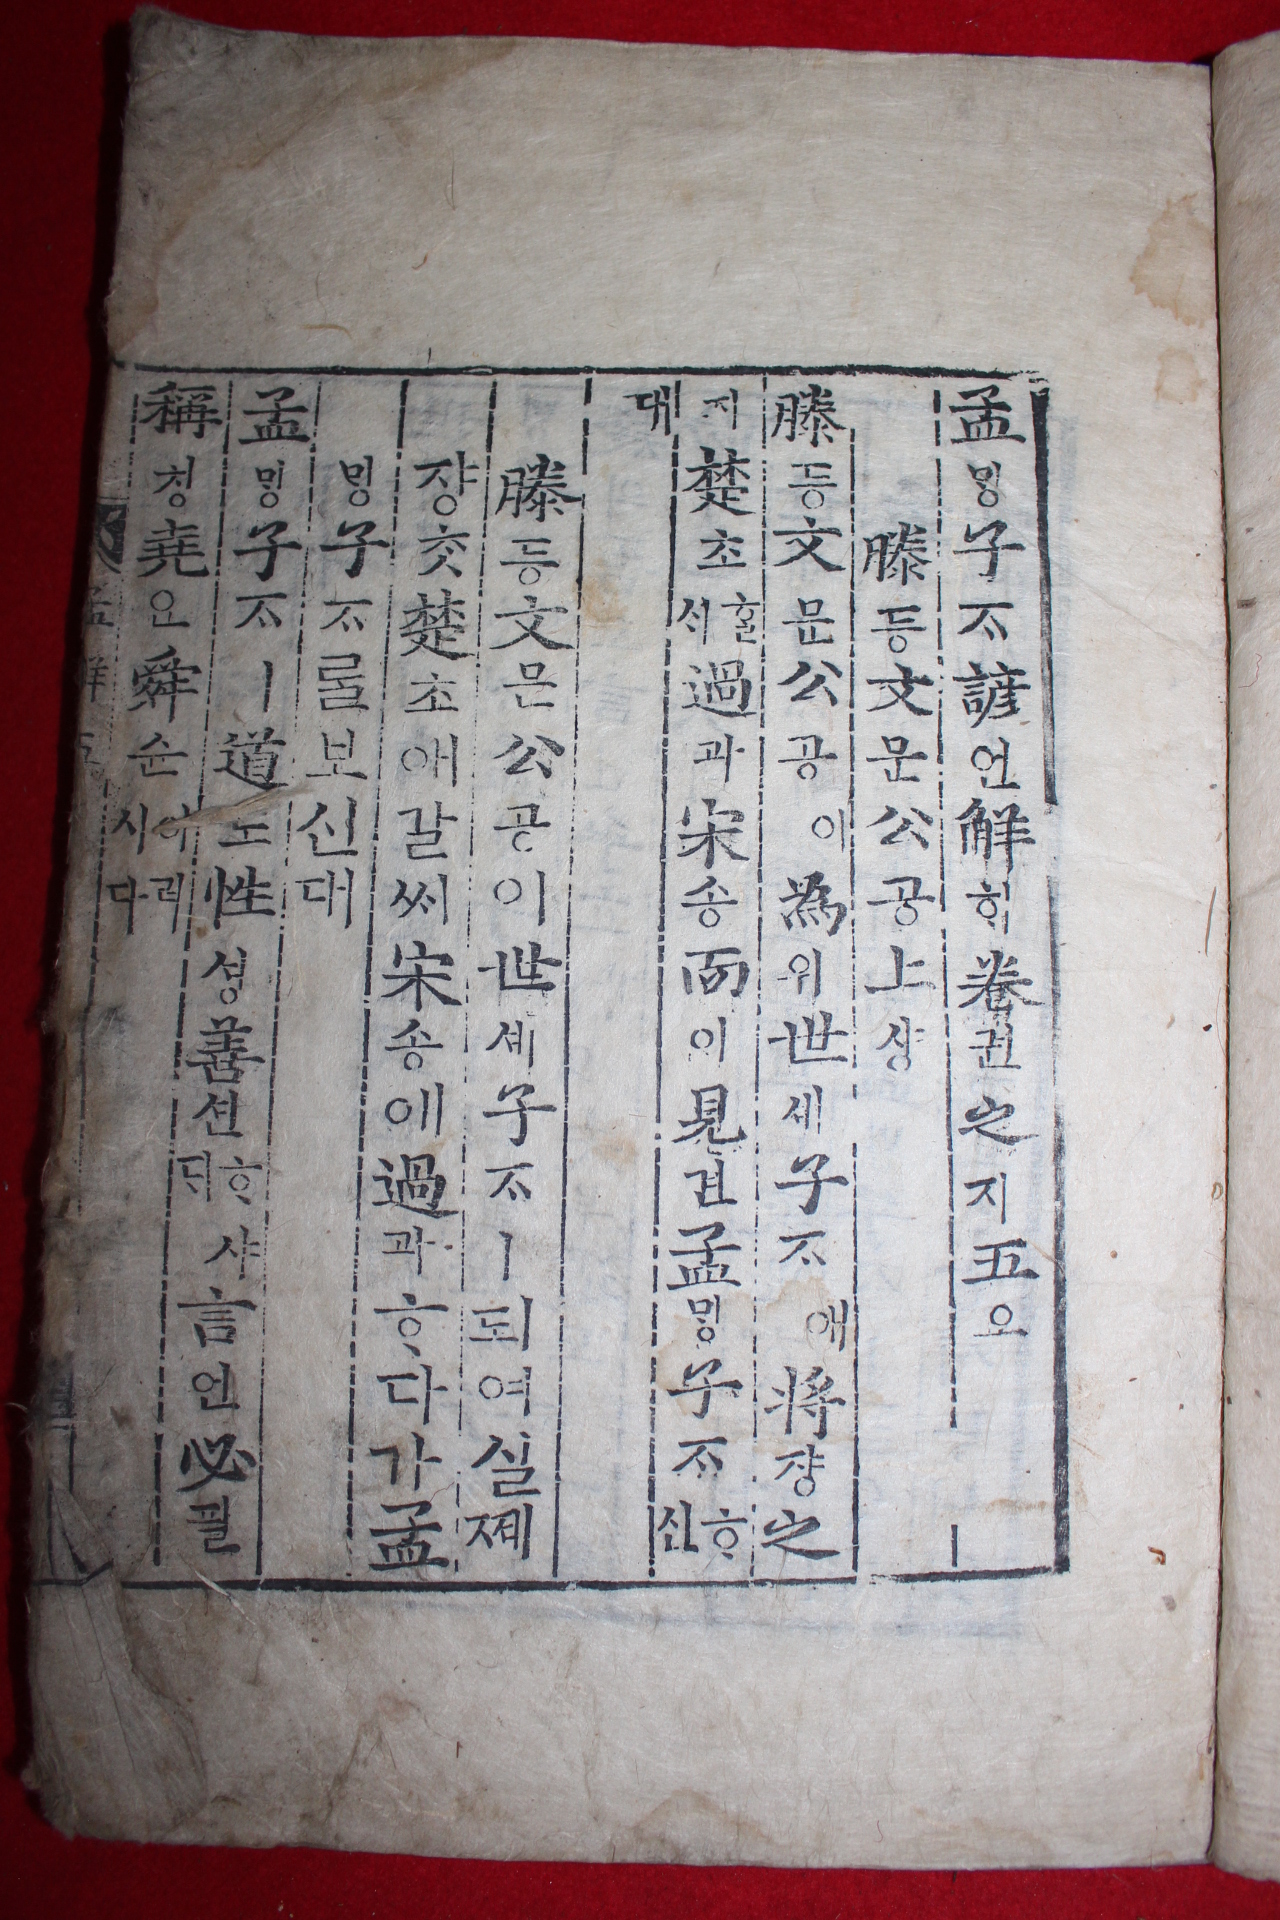 孟ᄆᆡᆼ子ᄌᆞ諺언解ᄒᆡ卷권之지五오
滕등文문公공上샹
滕등文문公공이爲위世셰子ᄌᆞ애將쟝之
지楚초ᄒᆞᆯ서過과宋송而이見견孟ᄆᆡᆼ子ᄌᆞᄒᆞ신
대
滕등文문公공이世셰子ᄌᆞㅣ되여실제
쟝ᄎᆞᆺ楚초애갈ᄊᆡ宋송애過과ᄒᆞ다가孟
ᄆᆡᆼ子ᄌᆞᄅᆞᆯ보신대
孟ᄆᆡᆼ子ᄌᆞㅣ道도性셩善션ᄒᆞ샤ᄃᆡ言언必필
稱칭堯요舜슌이러시다